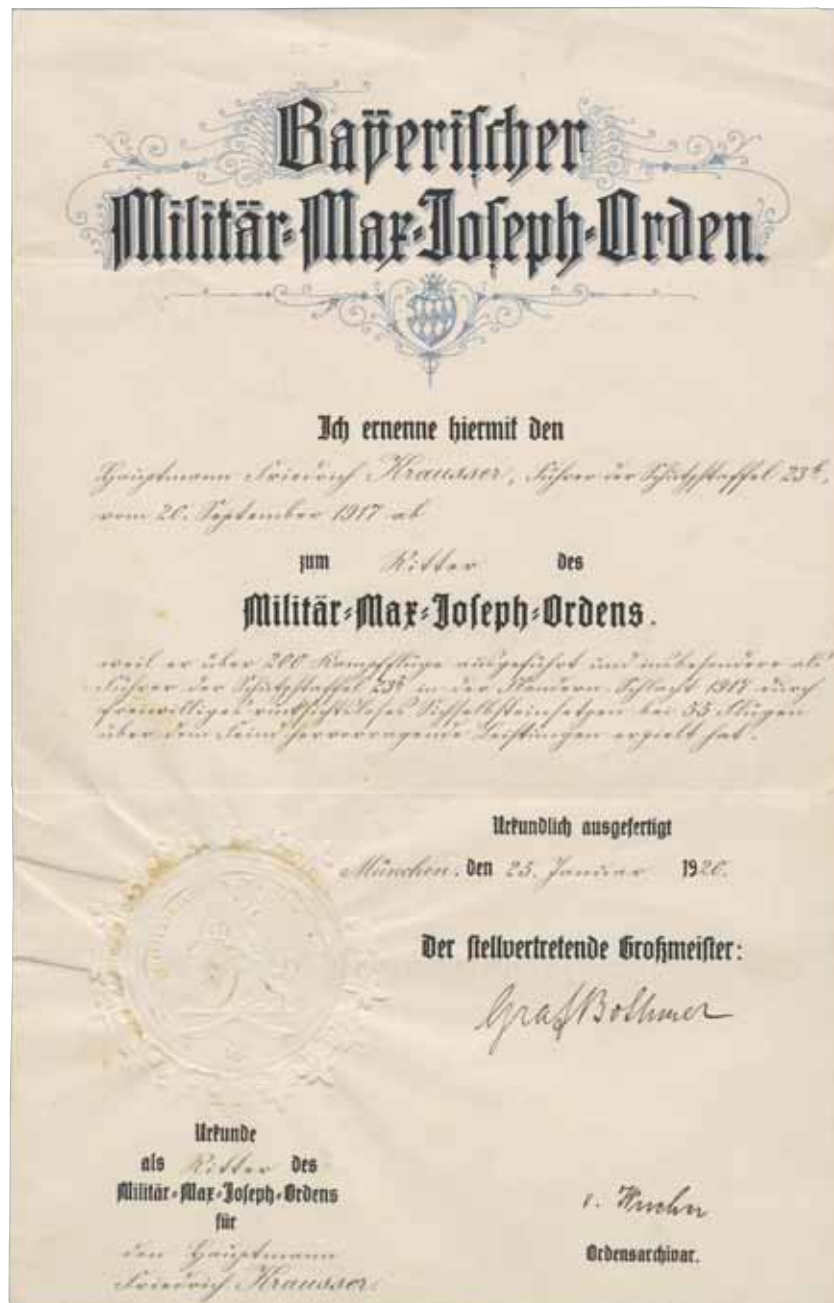 Bayerischer
Militär-Max-Joseph-Orden.
Ich ernenne hiermit den
Hauptmann Friedrich Krausser, Führer der Schutzstaffel 23b,
vom 20. September 1917 ab
zum Ritter des
Militär-Max-Joseph-Ordens.
weil er über 200 Kampfflüge ausgeführt und insbesondere als
Führer der Schutzstaffel 23b in der Flandern-Schlacht 1917 durch
freiwilliges rücksichtsloses Sichselbsteinsetzen bei 55 Flügen
über dem Feind hervorragende Leistungen erzielt hat.
Urkundlich ausgefertigt
München, den 25. Januar 1920.
Der stellvertretende Großmeister:
Graf Bothmer
Urkunde
als Ritter des
Militär-Max-Joseph-Ordens
für
den Hauptmann
Friedrich Krausser.
v.
Ordensarchivar.